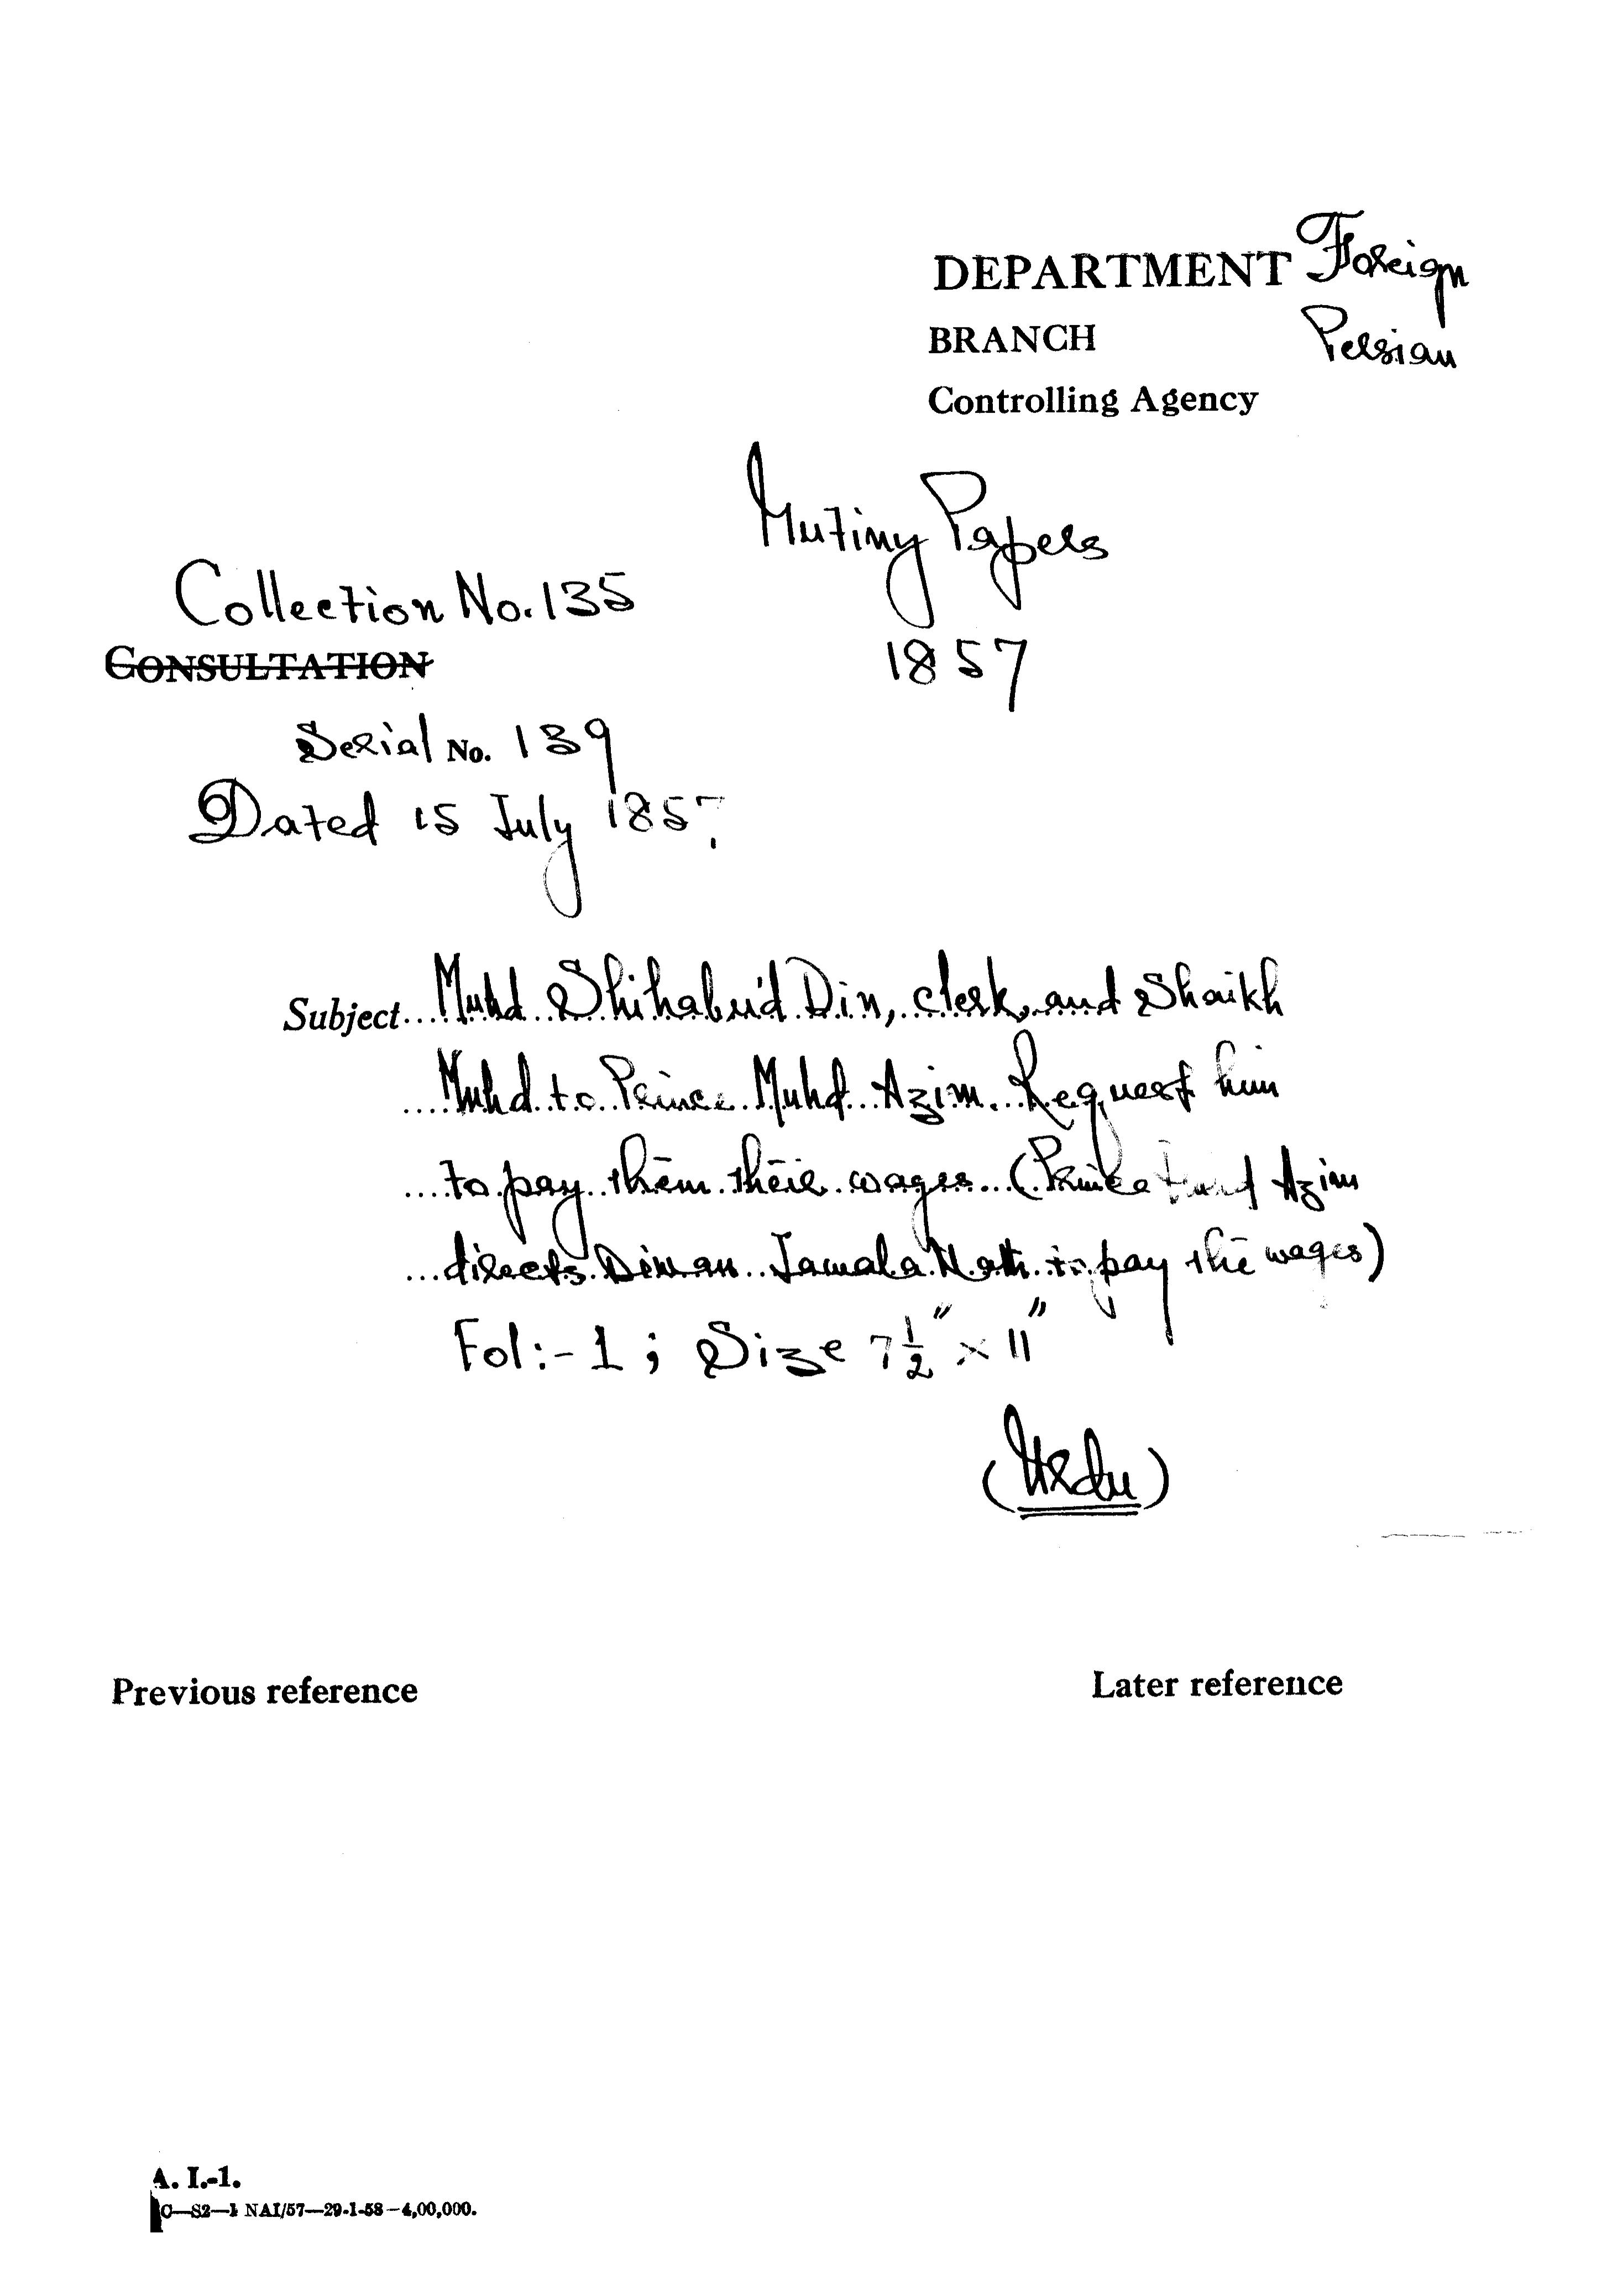 DEPARTMENT Foreign
BRANCH Persian
Controlling Agency
Mutiny Papers
1857
Collection No. 135
CONSULTATION
Serial No. 139
Dated 15 July 1857
Subject Muhd Shihabu'd Din, clerk, and Shaikh
Muhd to Prince Muhd Azim. Request him
to pay them their wages (Prince Azim
directs Diwan Jamala Nath to pay the wages)
Fol:- 1 ; Size 7 1/2" x 11"
(Urdu)
Previous reference
Later reference
A. I.-1.
C—S2—1 NAI/57—29-1-58—4,00,000.